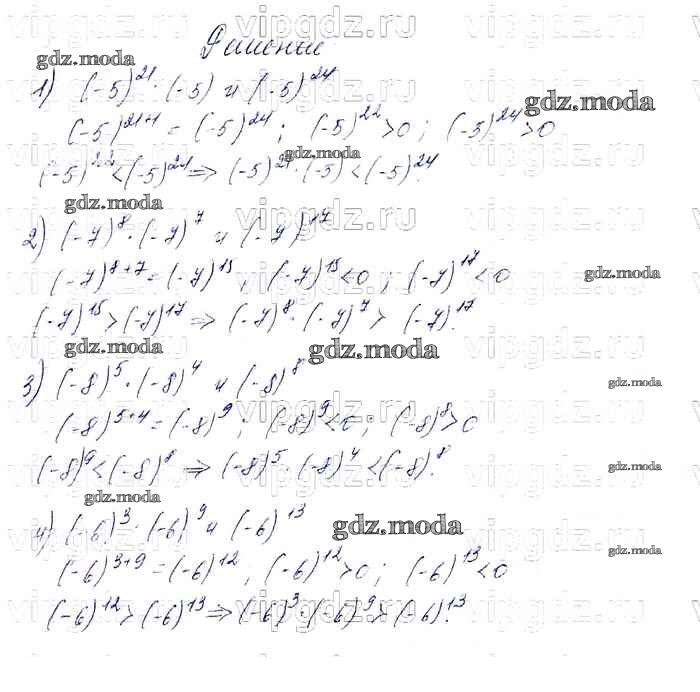 Решение
gdz.moda
1) (-5)²¹·(-5) и (-5)²⁴
gdz.moda
(-5)²¹⁺¹ = (-5)²⁴; (-5)²² > 0; (-5)²⁴ > 0
gdz.moda
(-5)²² < (-5)²⁴ ⇒ (-5)²¹·(-5) < (-5)²⁴.
gdz.moda
2) (-7)⁸·(-7)⁷ и (-7)¹⁷
(-7)⁸⁺⁷ = (-7)¹⁵; (-7)¹⁵ < 0; (-7)¹⁷ < 0
gdz.moda
(-7)¹⁵ > (-7)¹⁷ ⇒ (-7)⁸·(-7)⁷ > (-7)¹⁷.
gdz.moda gdz.moda
3) (-8)⁵·(-8)⁴ и (-8)⁸
gdz.moda
(-8)⁵⁺⁴ = (-8)⁹; (-8)⁹ < 0; (-8)⁸ > 0
(-8)⁹ < (-8)⁸ ⇒ (-8)⁵·(-8)⁴ < (-8)⁸.
gdz.moda
gdz.moda
4) (-6)³·(-6)⁹ и (-6)¹³
gdz.moda
gdz.moda
(-6)³⁺⁹ = (-6)¹²; (-6)¹² > 0; (-6)¹³ < 0
(-6)¹² > (-6)¹³ ⇒ (-6)³·(-6)⁹ > (-6)¹³.
vipgdz.ru